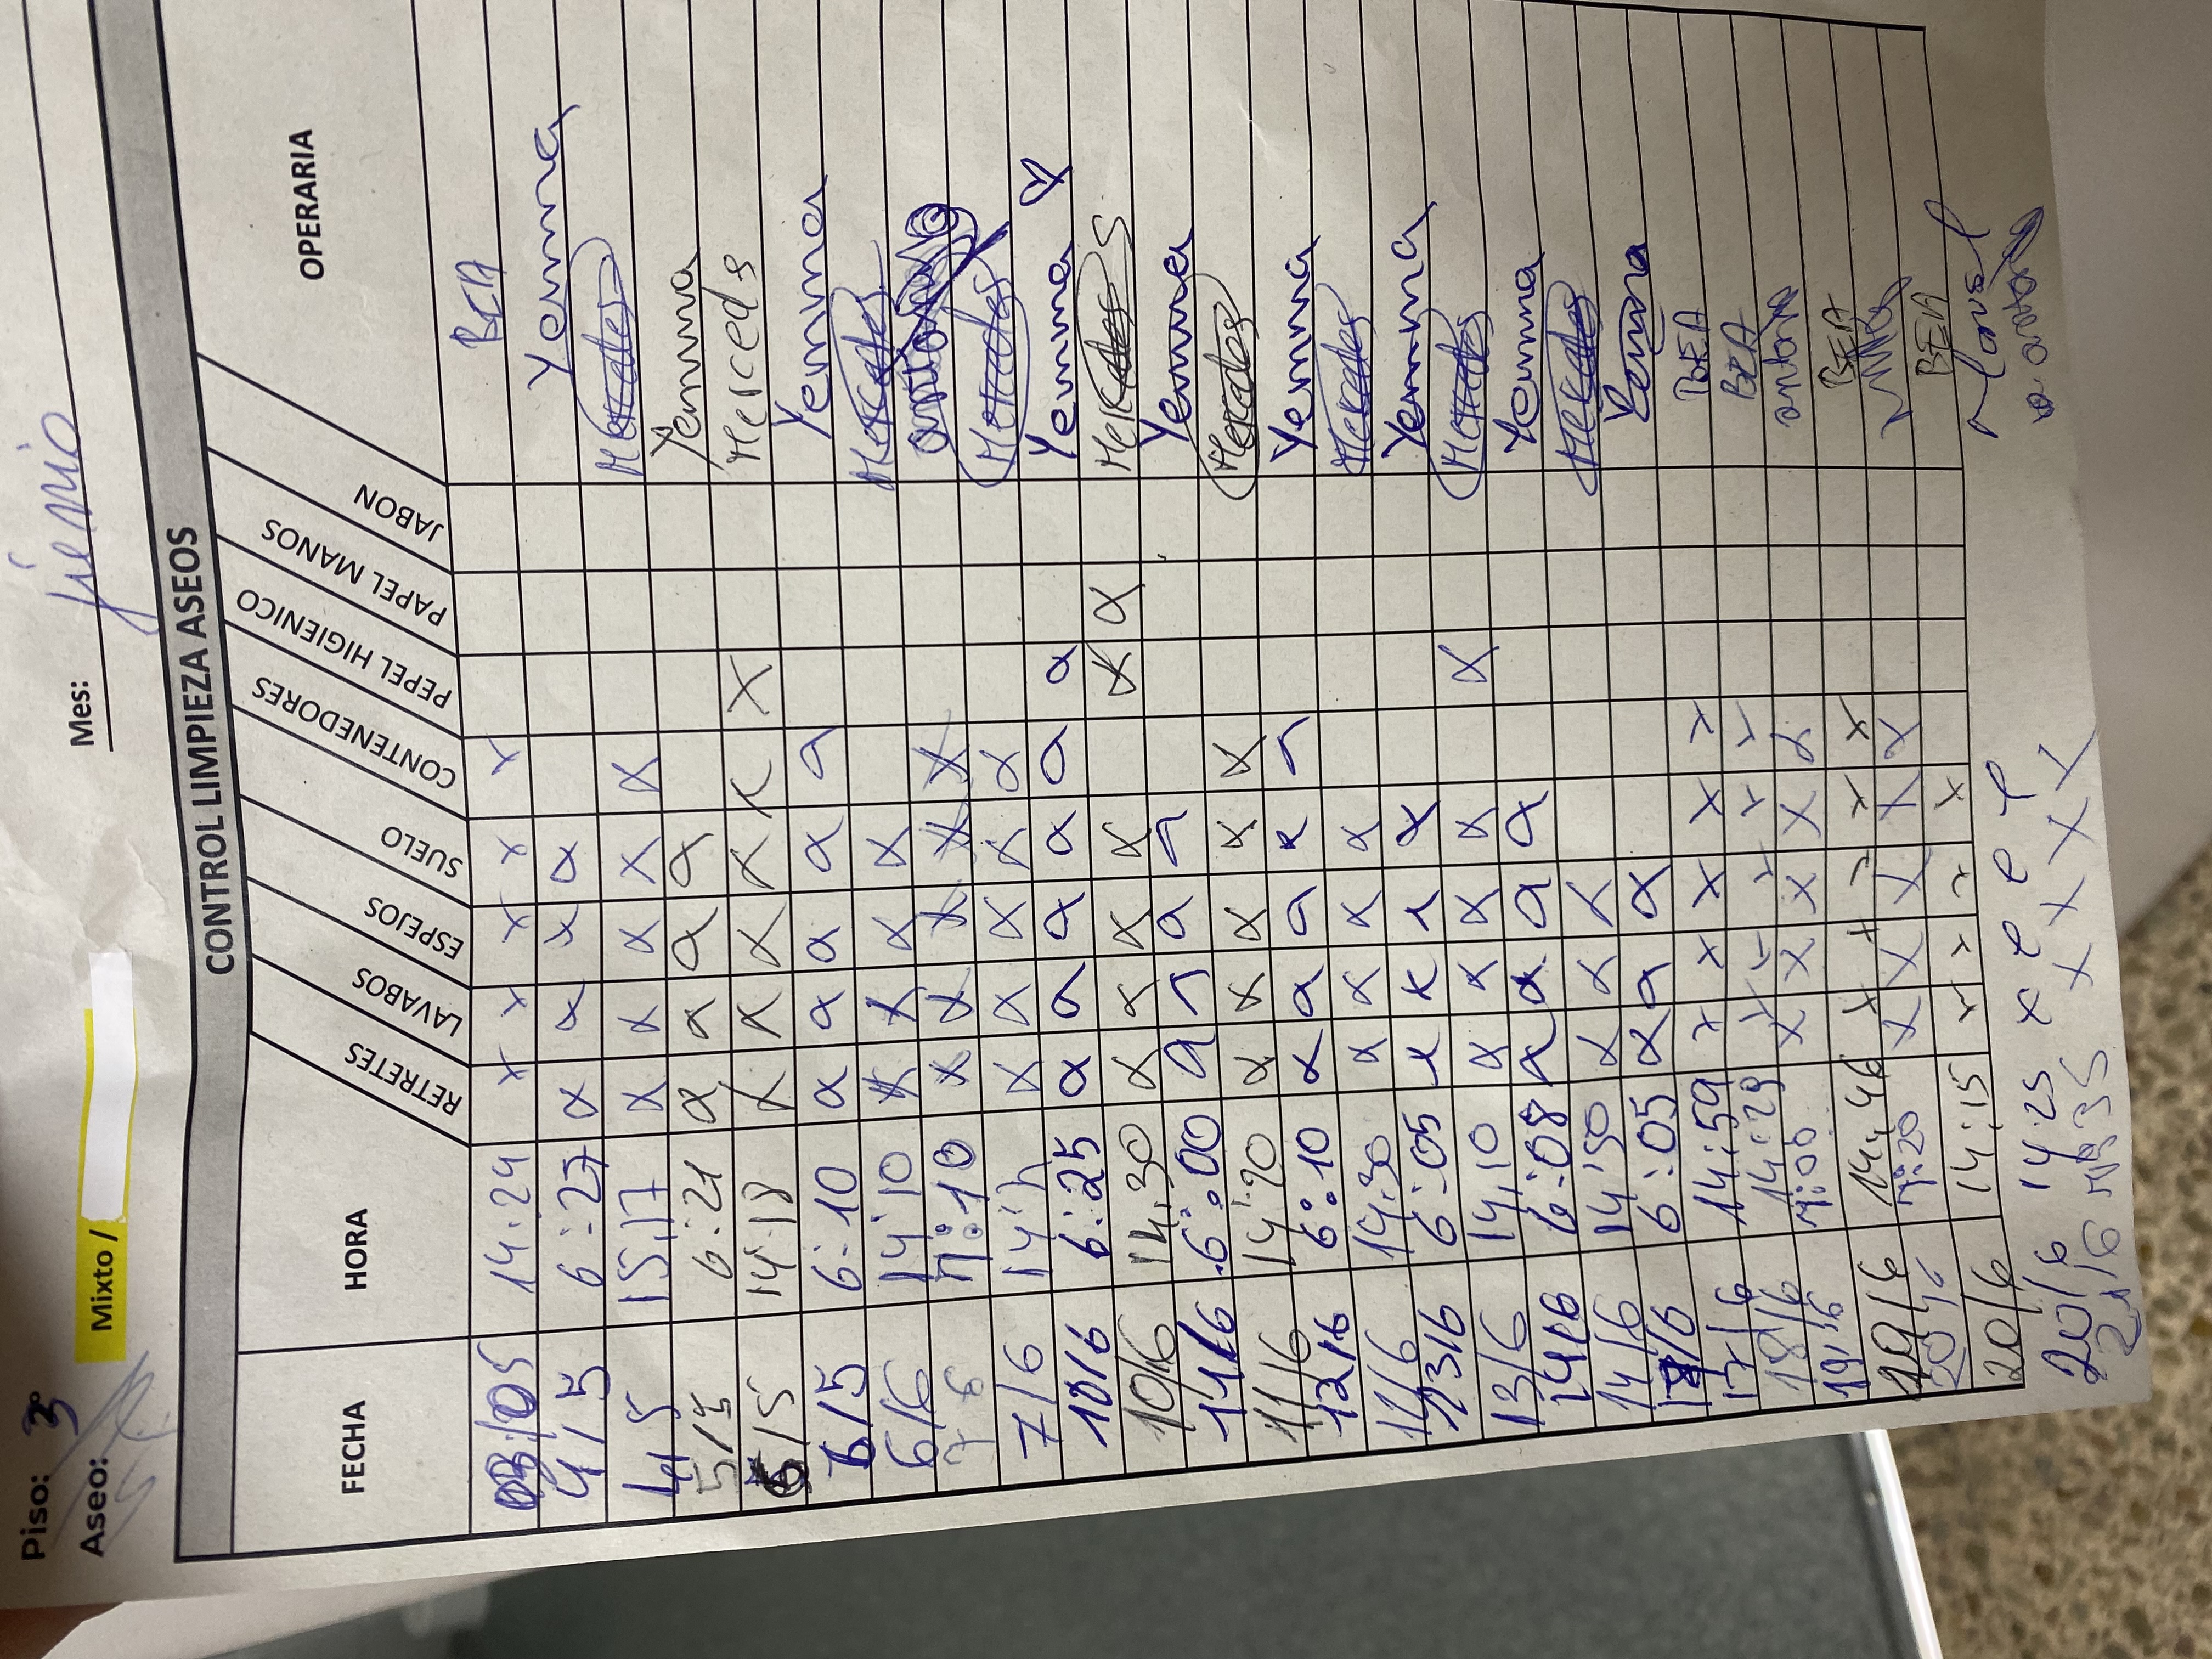 Piso: 3º
Aseo: Mixto /
Mes: junio
CONTROL LIMPIEZA ASEOS
FECHA HORA RETRETES LAVABOS ESPEJOS SUELO CONTENEDORES PEPEL HIGIENICO PAPEL MANOS JABON OPERARIA
03/05 14:24 x x x x x BEA
4/5 6:27 x x x x Yemma
4/5 15:17 x x x x x Mercedes
5/5 6:21 x x x x Yemma
6/5 14:18 x x x x x x Merceds
6/5 6:10 x x x x x Yemma
6/6 14:10 x x x x Mercedes
7 6 7:10 x x x x x
7/6 14 h x x x x x Mercedes
10/6 6:25 x x x x x x Yemma
10/6 14:30 x x x x x x Mercedes
11/6 6:00 x x x x Yemma
11/6 14:20 x x x x x Mercedes
12/6 6:10 x x x x x Yemma
12/6 14:30 x x x x Mercedes
13/6 6:05 x x x x Yemma
13/6 14:10 x x x x x Mercedes
14/6 6:08 x x x x Yemma
14/6 14:50 x x x Mercedes
6:05 x x x Yemma
17/6 14:59 x x x x x BEA
18/6 14:29 x x x x x BEA
19/6 7:00 x x x x x antonia
19/6 14:46 x x x x x BEA
20/6 7:20 x x x x x
20/6 14:15 x x x x BEA
20/6 14:25 x
21/6 35 x x x x